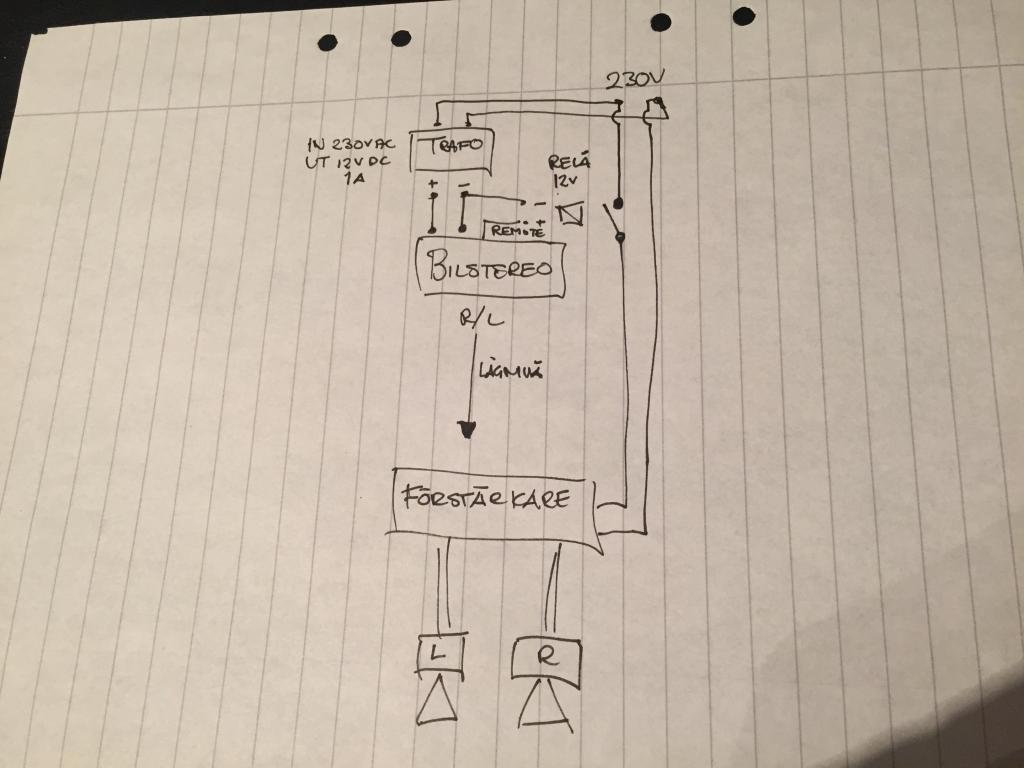 230V
IN 230V AC
UT 12V DC
1A
TRAFO
RELÄ
12V
+ -
-
+
REMOTE
BILSTEREO
R/L
LÅGNIVÅ
FÖRSTÄRKARE
L
R